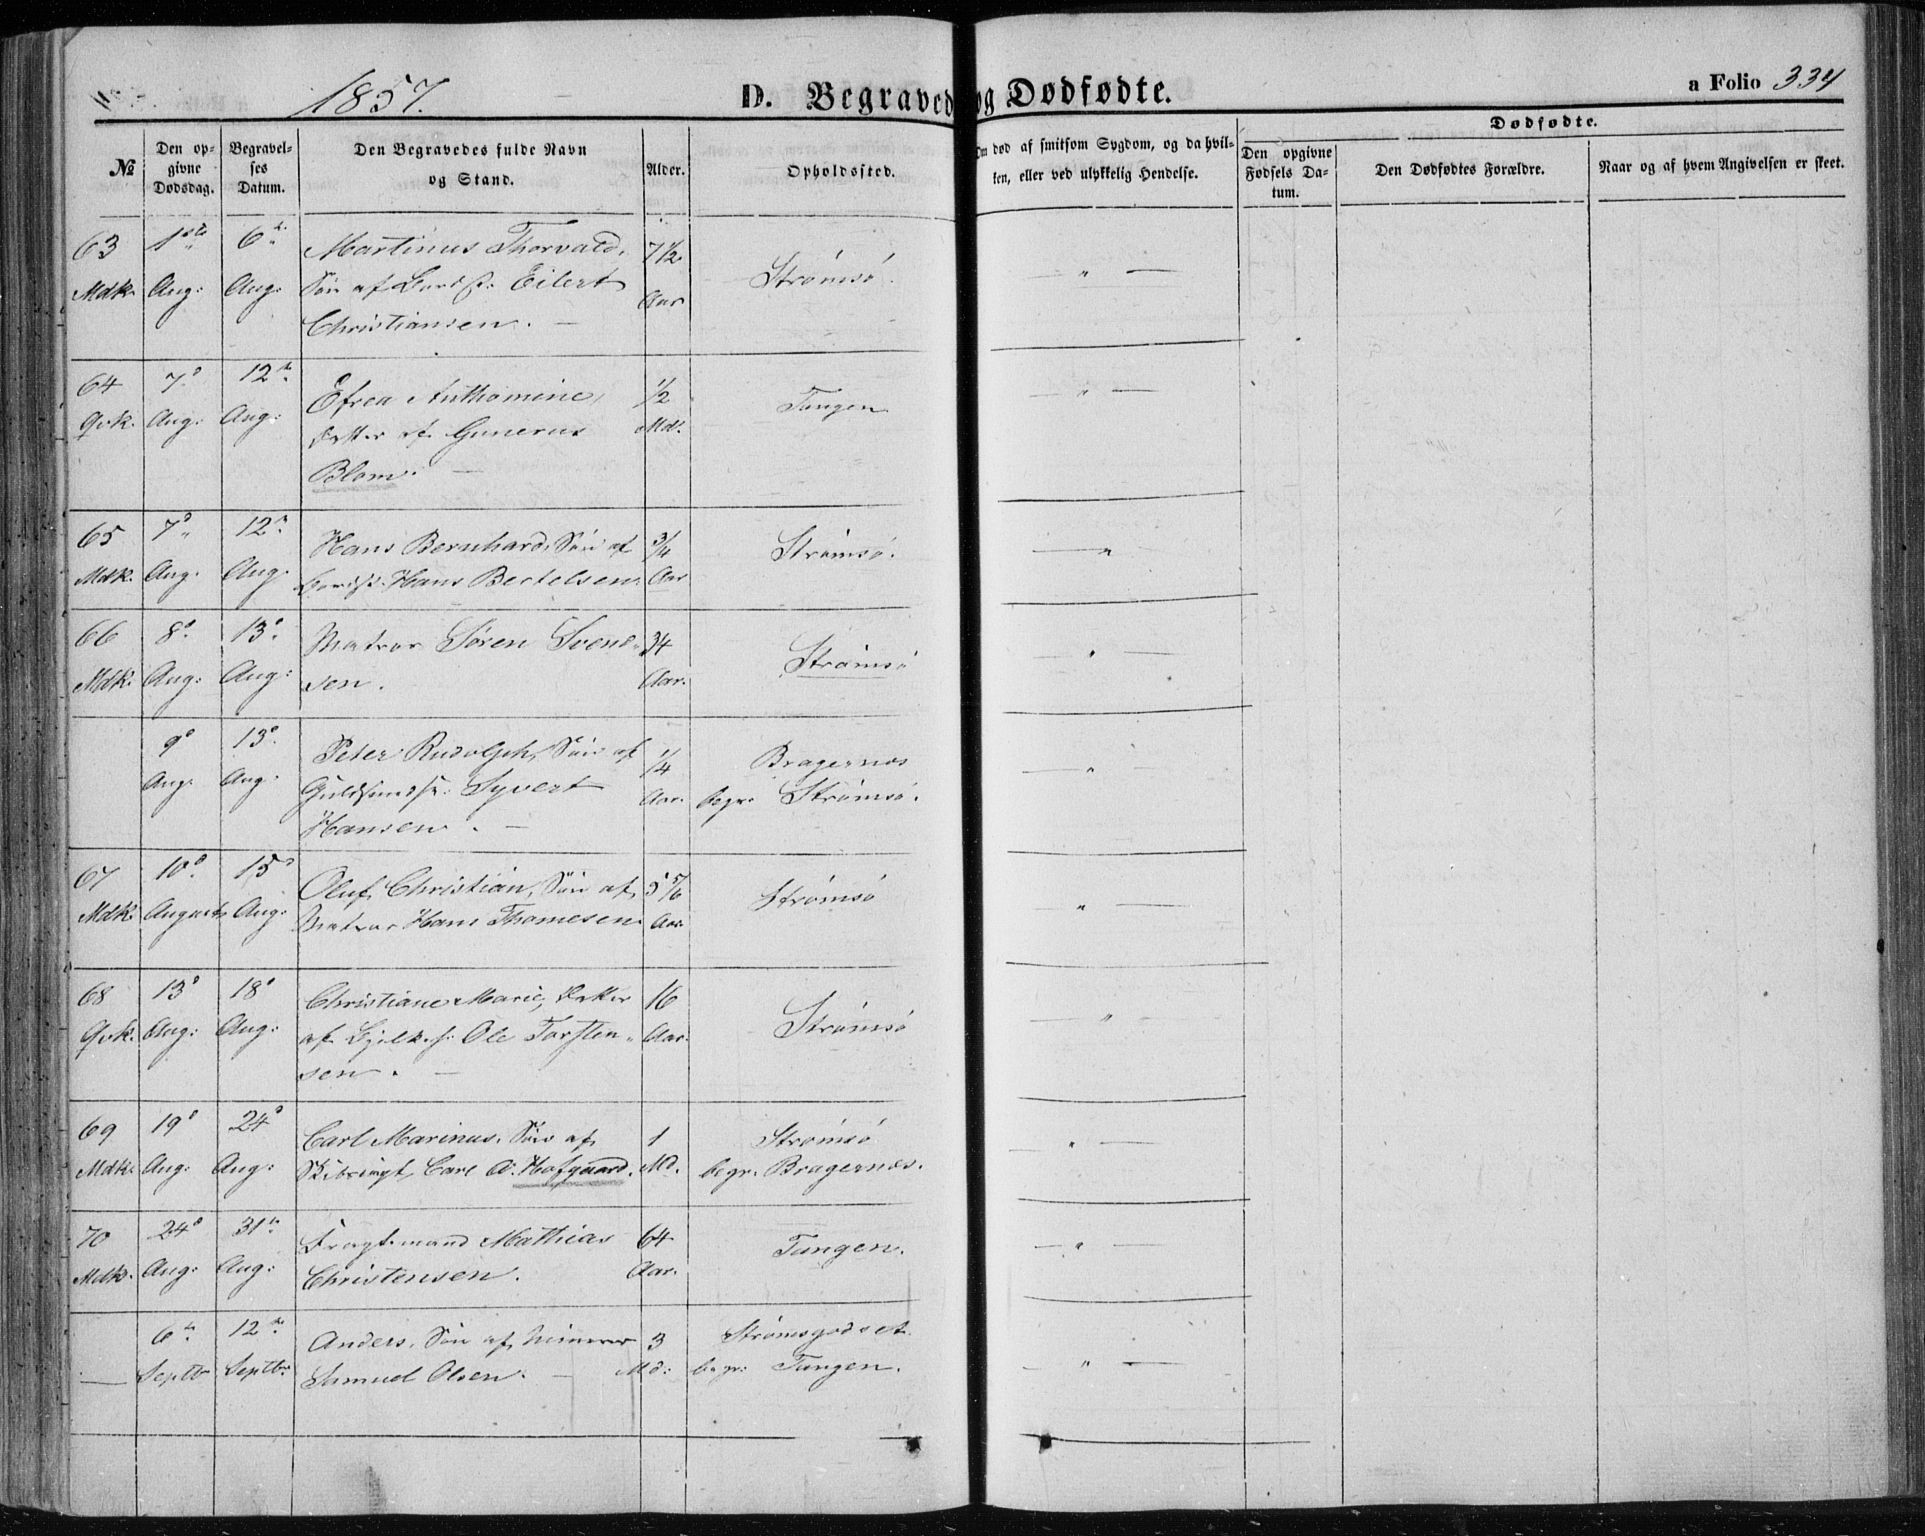 1857.
D. Begravede og Dødfødte.
a Folio 334
№
Den opgivne Dødsdag.
Begravelses Datum.
Den Begravedes fulde Navn og Stand.
Alder.
Opholdssted.
Om død af smitsom Sygdom, og da hvilken, eller ved ulykkelig Hendelse.
Dødfødte.
Den opgivne Fødsels Datum.
Den Dødfødtes Forældre.
Naar og af hvem Angivelsen er skeet.
63 1ste 6te Martinus Thorvald, 7½
Mdk. Aug: Aug: Søn af Eilert Aar Strømsø.
Christiansen. —
64 7de 12te Efrea Anthomine, ½ Tangen
Qvk. Aug: Aug: Datter af Gunerus Md.
Blom. —
65 7de 12te Hans Bernhard, Søn af ¾ Strømsø.
Mdk. Aug. Aug. Hans Bertelsen. Aar
66 8de 13de Matros Søren Svend- 34 Strømsø
Mdk. Aug: Aug: sen. Aar.
9de 13de Peter Rudolph, Søn af ¼ Bragernæs
Aug. Aug. Guldsmedsv. Syvert Aar. begr. Strømsø.
Hansen. —
67 10de 15de Oluf Christian, Søn af 5 5/6 Strømsø
Mdk. August Aug: Matros Hans Thomesen. Aar.
68 13de 18de Christiane Marie, Datter 16 Strømsø
Qvk. Aug: Aug: af Ole Torsten- Aar.
sen. —
69 19de 24de Carl Marinus, Søn af 1 Strømsø
Mdk. Aug: Aug: Carl A. Hofgaard. Md. begr. Bragernæs.
70 24de 31te Fragtmand Mathias 64 Tangen.
Mdk. Aug: Aug: Christensen. Aar.
— 6te 12te Anders, Søn af Murer 3 Strømsgodset
Septbr Septbr: Samuel Olsen. — Md: begr: Tangen.